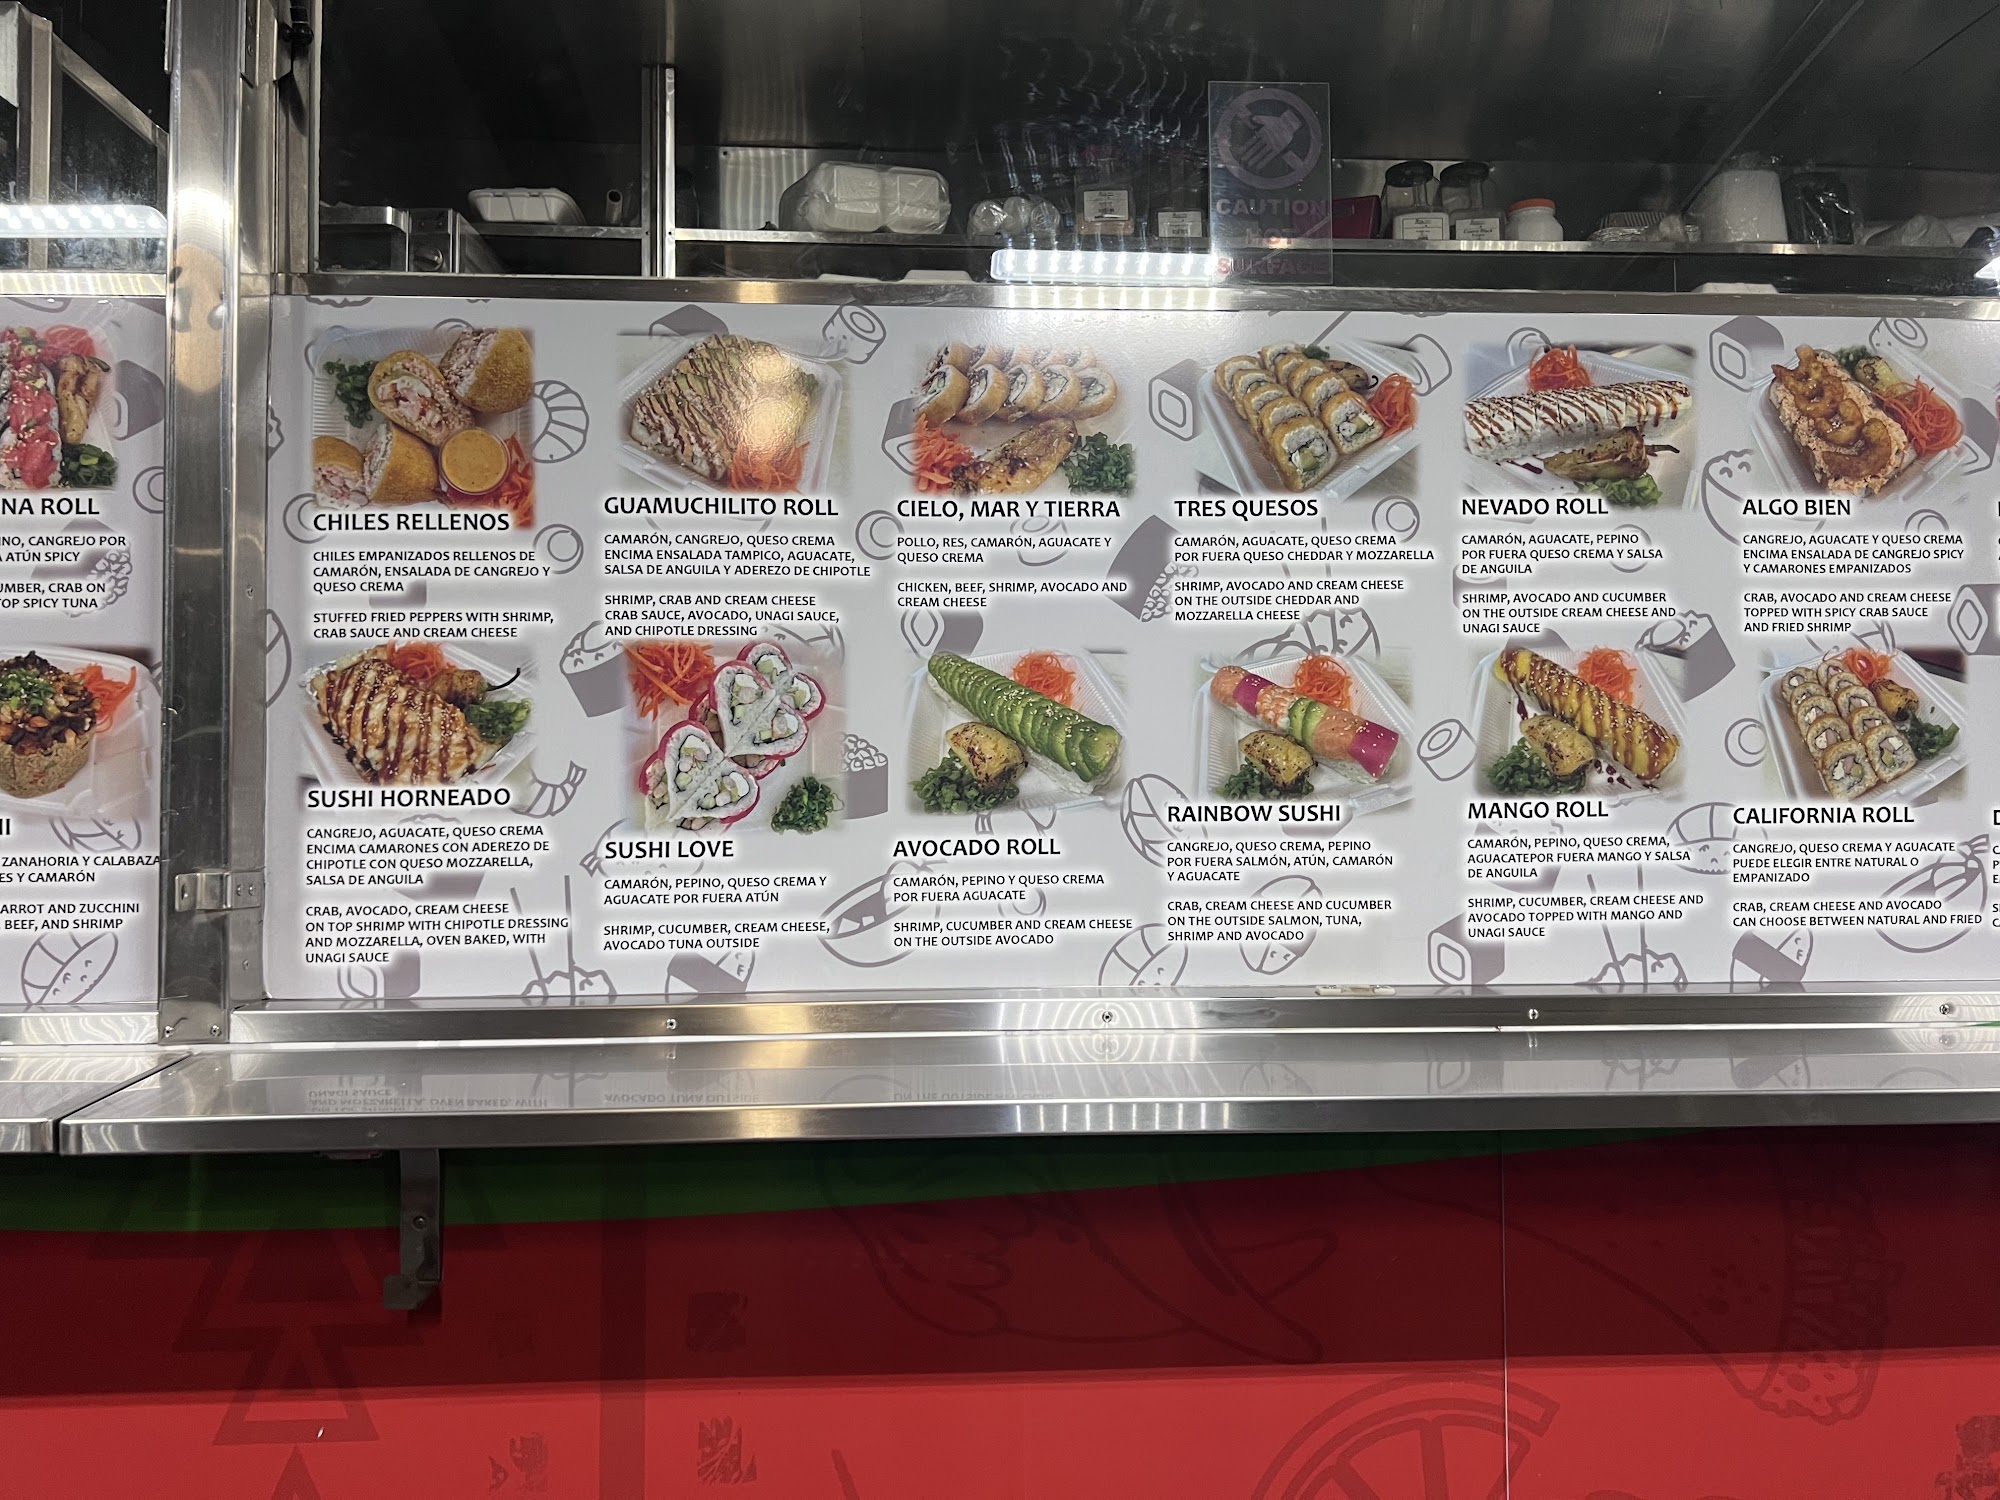 CAUTION
HOT
SURFACE
NA ROLL
INO, CANGREJO POR
A ATÚN SPICY
UMBER, CRAB ON
TOP SPICY TUNA
ZANAHORIA Y CALABAZA
ES Y CAMARÓN
ARROT AND ZUCCHINI
BEEF, AND SHRIMP
CHILES RELLENOS
CHILES EMPANIZADOS RELLENOS DE
CAMARÓN, ENSALADA DE CANGREJO Y
QUESO CREMA
STUFFED FRIED PEPPERS WITH SHRIMP,
CRAB SAUCE AND CREAM CHEESE
GUAMUCHILITO ROLL
CAMARÓN, CANGREJO, QUESO CREMA
ENCIMA ENSALADA TAMPICO, AGUACATE,
SALSA DE ANGUILA Y ADEREZO DE CHIPOTLE
SHRIMP, CRAB AND CREAM CHEESE
CRAB SAUCE, AVOCADO, UNAGI SAUCE,
AND CHIPOTLE DRESSING
CIELO, MAR Y TIERRA
POLLO, RES, CAMARÓN, AGUACATE Y
QUESO CREMA
CHICKEN, BEEF, SHRIMP, AVOCADO AND
CREAM CHEESE
TRES QUESOS
CAMARÓN, AGUACATE, QUESO CREMA
POR FUERA QUESO CHEDDAR Y MOZZARELLA
SHRIMP, AVOCADO AND CREAM CHEESE
ON THE OUTSIDE CHEDDAR AND
MOZZARELLA CHEESE
NEVADO ROLL
CAMARÓN, AGUACATE, PEPINO
POR FUERA QUESO CREMA Y SALSA
DE ANGUILA
SHRIMP, AVOCADO AND CUCUMBER
ON THE OUTSIDE CREAM CHEESE AND
UNAGI SAUCE
ALGO BIEN
CANGREJO, AGUACATE Y QUESO CREMA
ENCIMA ENSALADA DE CANGREJO SPICY
Y CAMARONES EMPANIZADOS
CRAB, AVOCADO AND CREAM CHEESE
TOPPED WITH SPICY CRAB SAUCE
AND FRIED SHRIMP
SUSHI HORNEADO
CANGREJO, AGUACATE, QUESO CREMA
ENCIMA CAMARONES CON ADEREZO DE
CHIPOTLE CON QUESO MOZZARELLA,
SALSA DE ANGUILA
CRAB, AVOCADO, CREAM CHEESE
ON TOP SHRIMP WITH CHIPOTLE DRESSING
AND MOZZARELLA, OVEN BAKED, WITH
UNAGI SAUCE
SUSHI LOVE
CAMARÓN, PEPINO, QUESO CREMA Y
AGUACATE POR FUERA ATÚN
SHRIMP, CUCUMBER, CREAM CHEESE,
AVOCADO TUNA OUTSIDE
AVOCADO ROLL
CAMARÓN, PEPINO Y QUESO CREMA
POR FUERA AGUACATE
SHRIMP, CUCUMBER AND CREAM CHEESE
ON THE OUTSIDE AVOCADO
RAINBOW SUSHI
CANGREJO, QUESO CREMA, PEPINO
POR FUERA SALMÓN, ATÚN, CAMARÓN
Y AGUACATE
CRAB, CREAM CHEESE AND CUCUMBER
ON THE OUTSIDE SALMON, TUNA,
SHRIMP AND AVOCADO
MANGO ROLL
CAMARÓN, PEPINO, QUESO CREMA,
AGUACATEPOR FUERA MANGO Y SALSA
DE ANGUILA
SHRIMP, CUCUMBER, CREAM CHEESE AND
AVOCADO TOPPED WITH MANGO AND
UNAGI SAUCE
CALIFORNIA ROLL
CANGREJO, QUESO CREMA Y AGUACATE
PUEDE ELEGIR ENTRE NATURAL O
EMPANIZADO
CRAB, CREAM CHEESE AND AVOCADO
CAN CHOOSE BETWEEN NATURAL AND FRIED